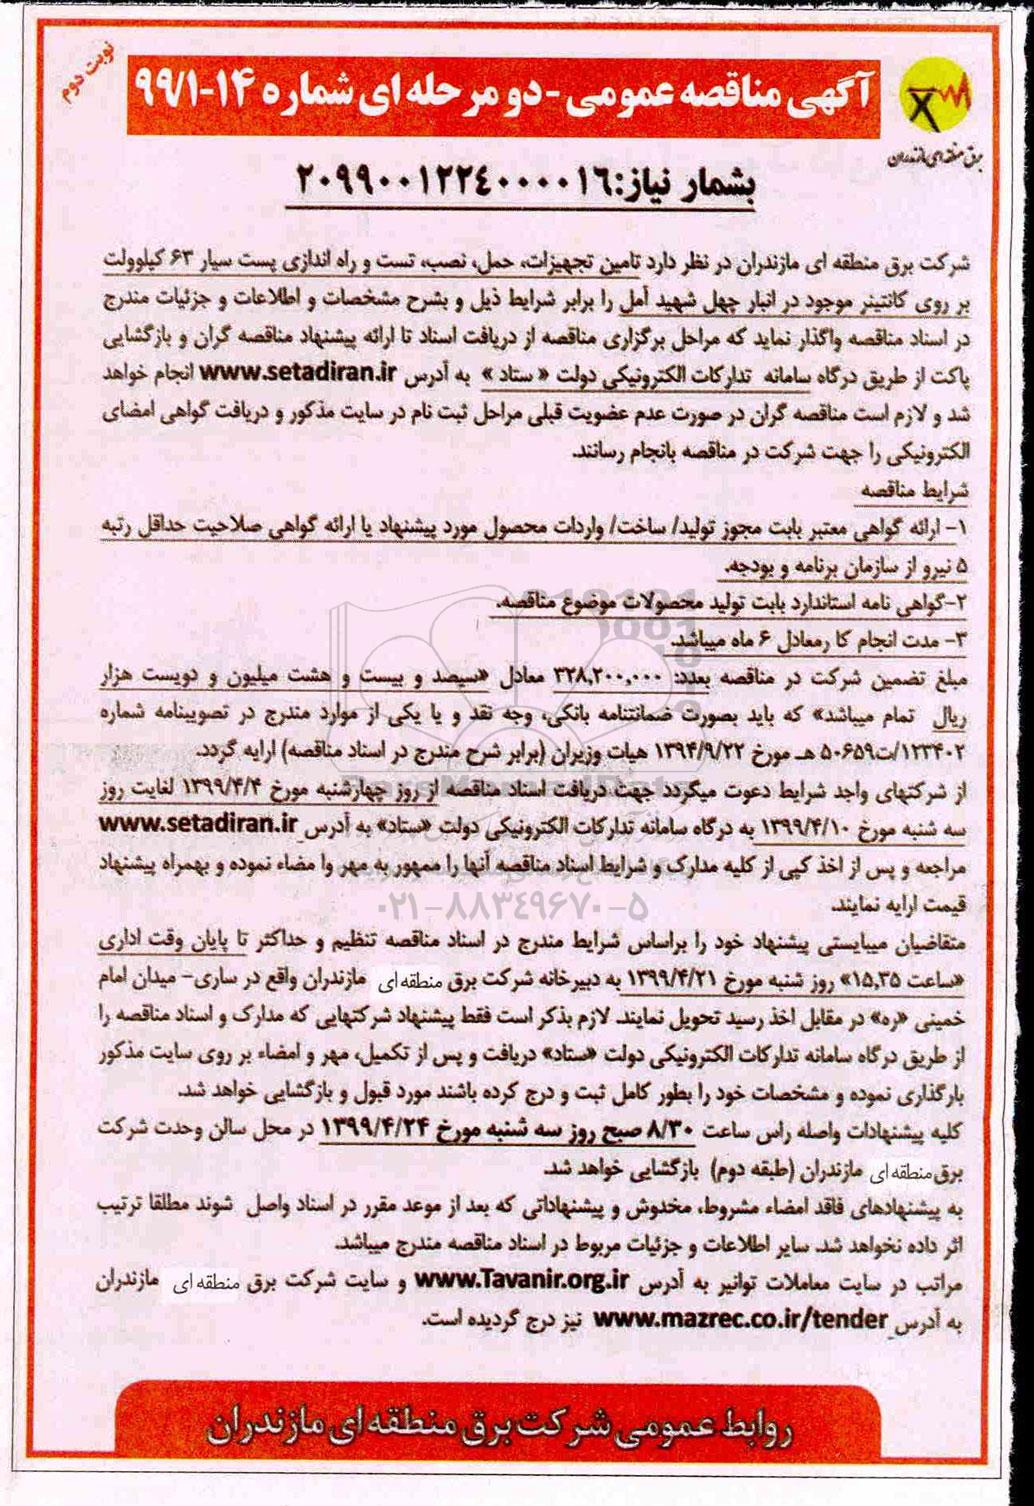 نوبت دوم
آگهی مناقصه عمومی - دو مرحله ای شماره ۱۴-۹۹/۱
برق منطقه ای مازندران
بشمار نیاز:۲۰۹۹۰۰۱۲۲۴۰۰۰۰۱۶
شرکت برق منطقه ای مازندران در نظر دارد تامین تجهیزات، حمل، نصب، تست و راه اندازی پست سیار ۶۳ کیلوولت
بر روی کانتینر موجود در انبار چهل شهید آمل را برابر شرایط ذیل و بشرح مشخصات و اطلاعات و جزئیات مندرج
در اسناد مناقصه واگذار نماید که مراحل برگزاری مناقصه از دریافت اسناد تا ارائه پیشنهاد مناقصه گران و بازگشایی
پاکت از طریق درگاه سامانه تدارکات الکترونیکی دولت « ستاد » به آدرس www.setadiran.ir انجام خواهد
شد و لازم است مناقصه گران در صورت عدم عضویت قبلی مراحل ثبت نام در سایت مذکور و دریافت گواهی امضای
الکترونیکی را جهت شرکت در مناقصه بانجام رسانند.
شرایط مناقصه
۱- ارائه گواهی معتبر بابت مجوز تولید/ ساخت/ واردات محصول مورد پیشنهاد یا ارائه گواهی صلاحیت حداقل رتبه
۵ نیرو از سازمان برنامه و بودجه.
۲-گواهی نامه استاندارد بابت تولید محصولات موضوع مناقصه.
۳- مدت انجام کا رمعادل ۶ ماه میباشد.
مبلغ تضمین شرکت در مناقصه بعدد: ۳۲۸,۲۰۰,۰۰۰ معادل «سیصد و بیست و هشت میلیون و دویست هزار
ریال تمام میباشد» که باید بصورت ضمانتنامه بانکی، وجه نقد و یا یکی از موارد مندرج در تصویبنامه شماره
۱۲۳۴۰۲/ت۵۰۶۵۹ هـ مورخ ۱۳۹۴/۹/۲۲ هیات وزیران (برابر شرح مندرج در اسناد مناقصه) ارایه گردد.
از شرکتهای واجد شرایط دعوت میگردد جهت دریافت اسناد مناقصه از روز چهارشنبه مورخ ۱۳۹۹/۴/۴ لغایت روز
سه شنبه مورخ ۱۳۹۹/۴/۱۰ به درگاه سامانه تدارکات الکترونیکی دولت «ستاد» به آدرس www.setadiran.ir
مراجعه و پس از اخذ کپی از کلیه مدارک و شرایط اسناد مناقصه آنها را ممهور به مهر وا مضاء نموده و بهمراه پیشنهاد
قیمت ارایه نمایند.
۰۲۱-۸۸۳۴۹۶۷۰-۵
متقاضیان میبایستی پیشنهاد خود را براساس شرایط مندرج در اسناد مناقصه تنظیم و حداکثر تا پایان وقت اداری
«ساعت ۱۵,۳۵» روز شنبه مورخ ۱۳۹۹/۴/۲۱ به دبیرخانه شرکت برق منطقه ای مازندران واقع در ساری- میدان امام
خمینی «ره» در مقابل اخذ رسید تحویل نمایند. لازم بذکر است فقط پیشنهاد شرکتهایی که مدارک و اسناد مناقصه را
از طریق درگاه سامانه تدارکات الکترونیکی دولت «ستاد» دریافت و پس از تکمیل، مهر و امضاء بر روی سایت مذکور
بارگذاری نموده و مشخصات خود را بطور کامل ثبت و درج کرده باشند مورد قبول و بازگشایی خواهد شد.
کلیه پیشنهادات واصله راس ساعت ۸/۳۰ صبح روز سه شنبه مورخ ۱۳۹۹/۴/۲۴ در محل سالن وحدت شرکت
برق منطقه ای مازندران (طبقه دوم) بازگشایی خواهد شد.
به پیشنهادهای فاقد امضاء مشروط، مخدوش و پیشنهاداتی که بعد از موعد مقرر در اسناد واصل شوند مطلقا ترتیب
اثر داده نخواهد شد. سایر اطلاعات و جزئیات مربوط در اسناد مناقصه مندرج میباشد.
مراتب در سایت معاملات توانیر به آدرس www.Tavanir.org.ir و سایت شرکت برق منطقه ای مازندران
به آدرس www.mazrec.co.ir/tender نیز درج گردیده است.
روابط عمومی شرکت برق منطقه ای مازندران